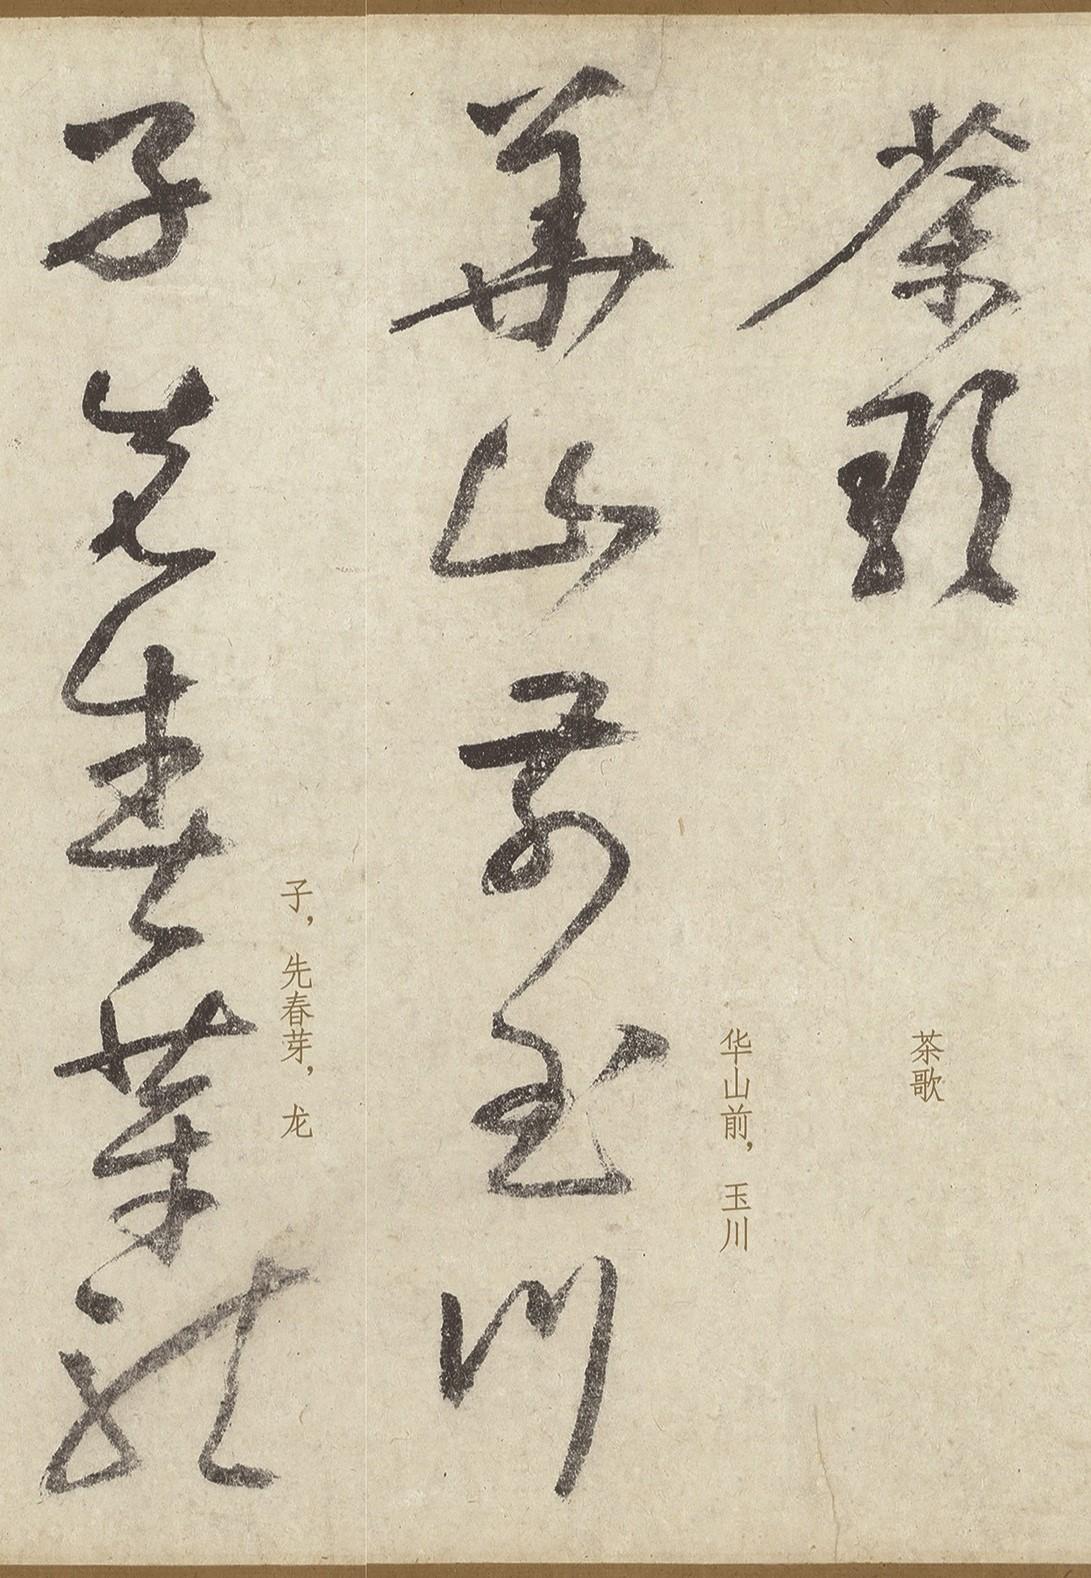 茶歌
茶歌
華山前玉川
华山前，玉川
子先春芽龍
子，先春芽，龙